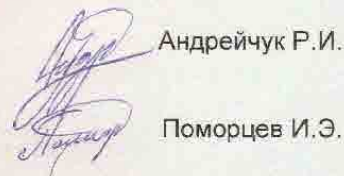 Андрейчук Р.И.
Поморцев И.Э.